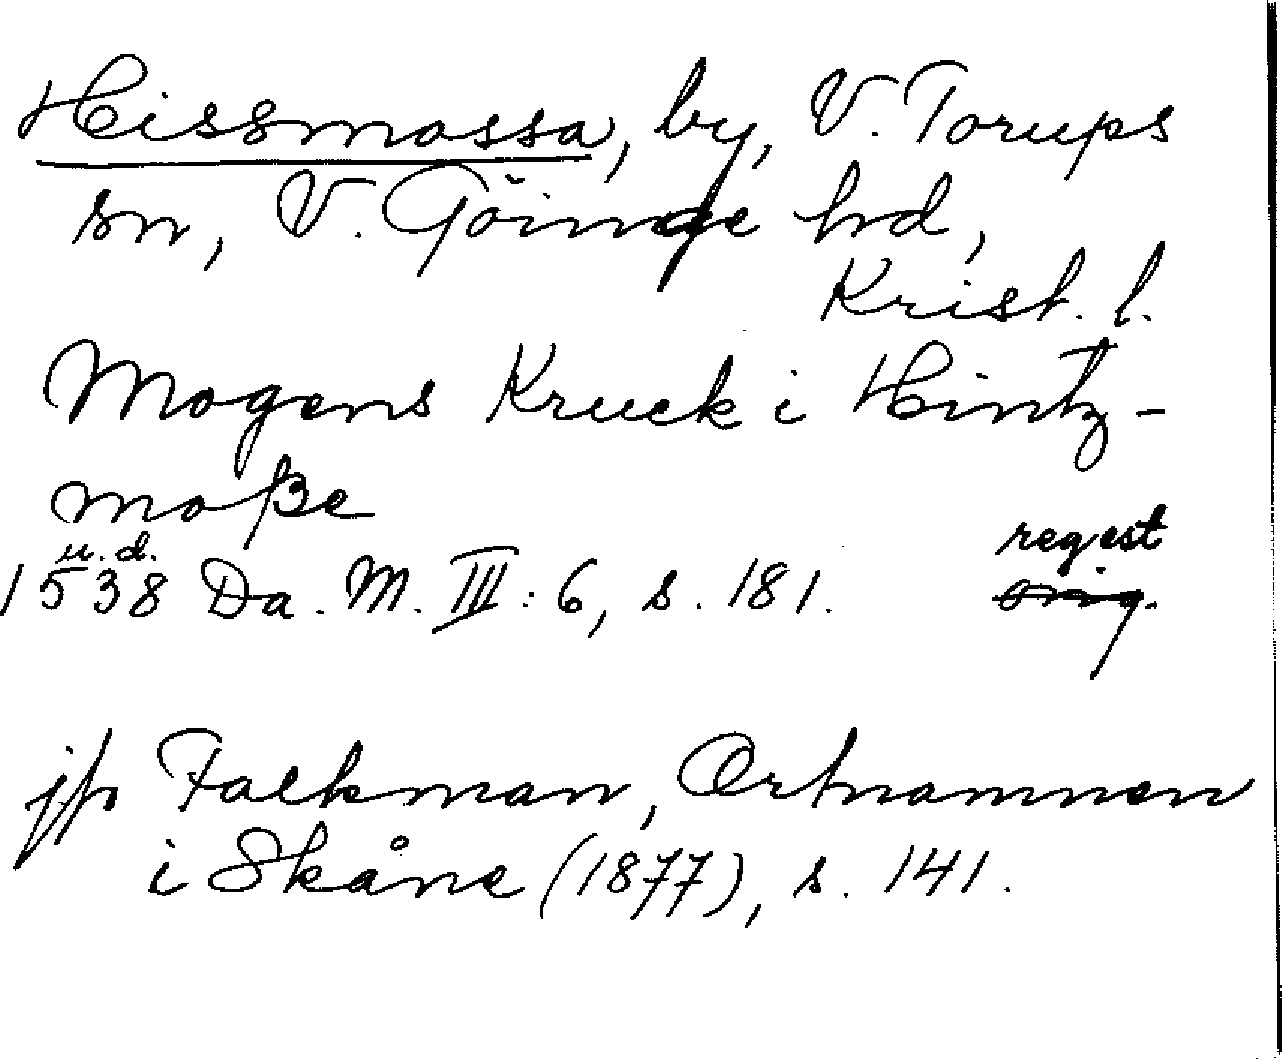 Hissmossa, by, V. Torups
sn, V. Göinge hd,
Krist. l.
Mogens Kruck i Hintz-
moße
u.d.
1538 Da. M. III: 6, s. 181.
regest
orig.
jfr Falkman, Ortnamnen
i Skåne (1877), s. 141.